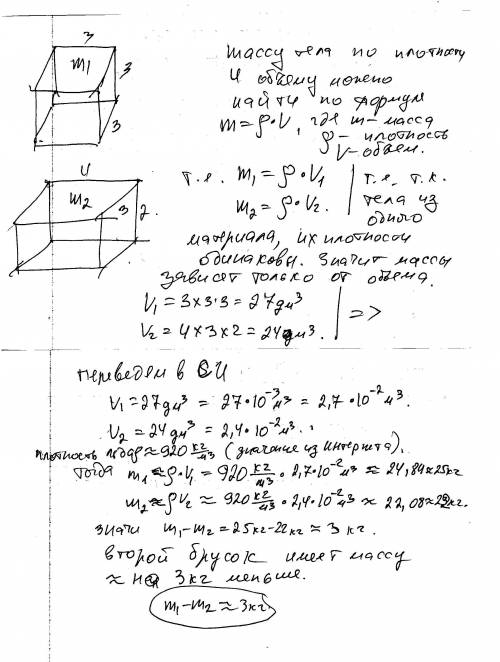 3
m1
3
3
массу тела по плотности
и объему можно
найти по формуле
m=ρ·V, где m-масса
ρ- плотность
V-объем.
4
m2
3
2.
т.е. m1=ρ·V1
m2=ρ·V2.
т.е. т.к.
тела из
одного
материала, их плотности
одинаковы. Значит массы
зависят только от объема.
V1=3×3·3=27дм³
V2=4×3×2=24дм³.
=>
переведем в СИ
V1=27дм³=27·10⁻³м³=2,7·10⁻²м³.
V2=24дм³=2,4·10⁻²м³.
плотность ≈920 кг/м³ (значение из интернета).
тогда m1≈ρ·V1=920 кг/м³·2,7·10⁻²м³≈24,84≈25кг
m2≈ρV2≈920 кг/м³·2,4·10⁻²м³≈22,08≈22кг.
значи m1-m2=25кг-22кг≈3кг.
второй брусок имеет массу
≈ на 3кг меньше.
m1-m2≈3кг.